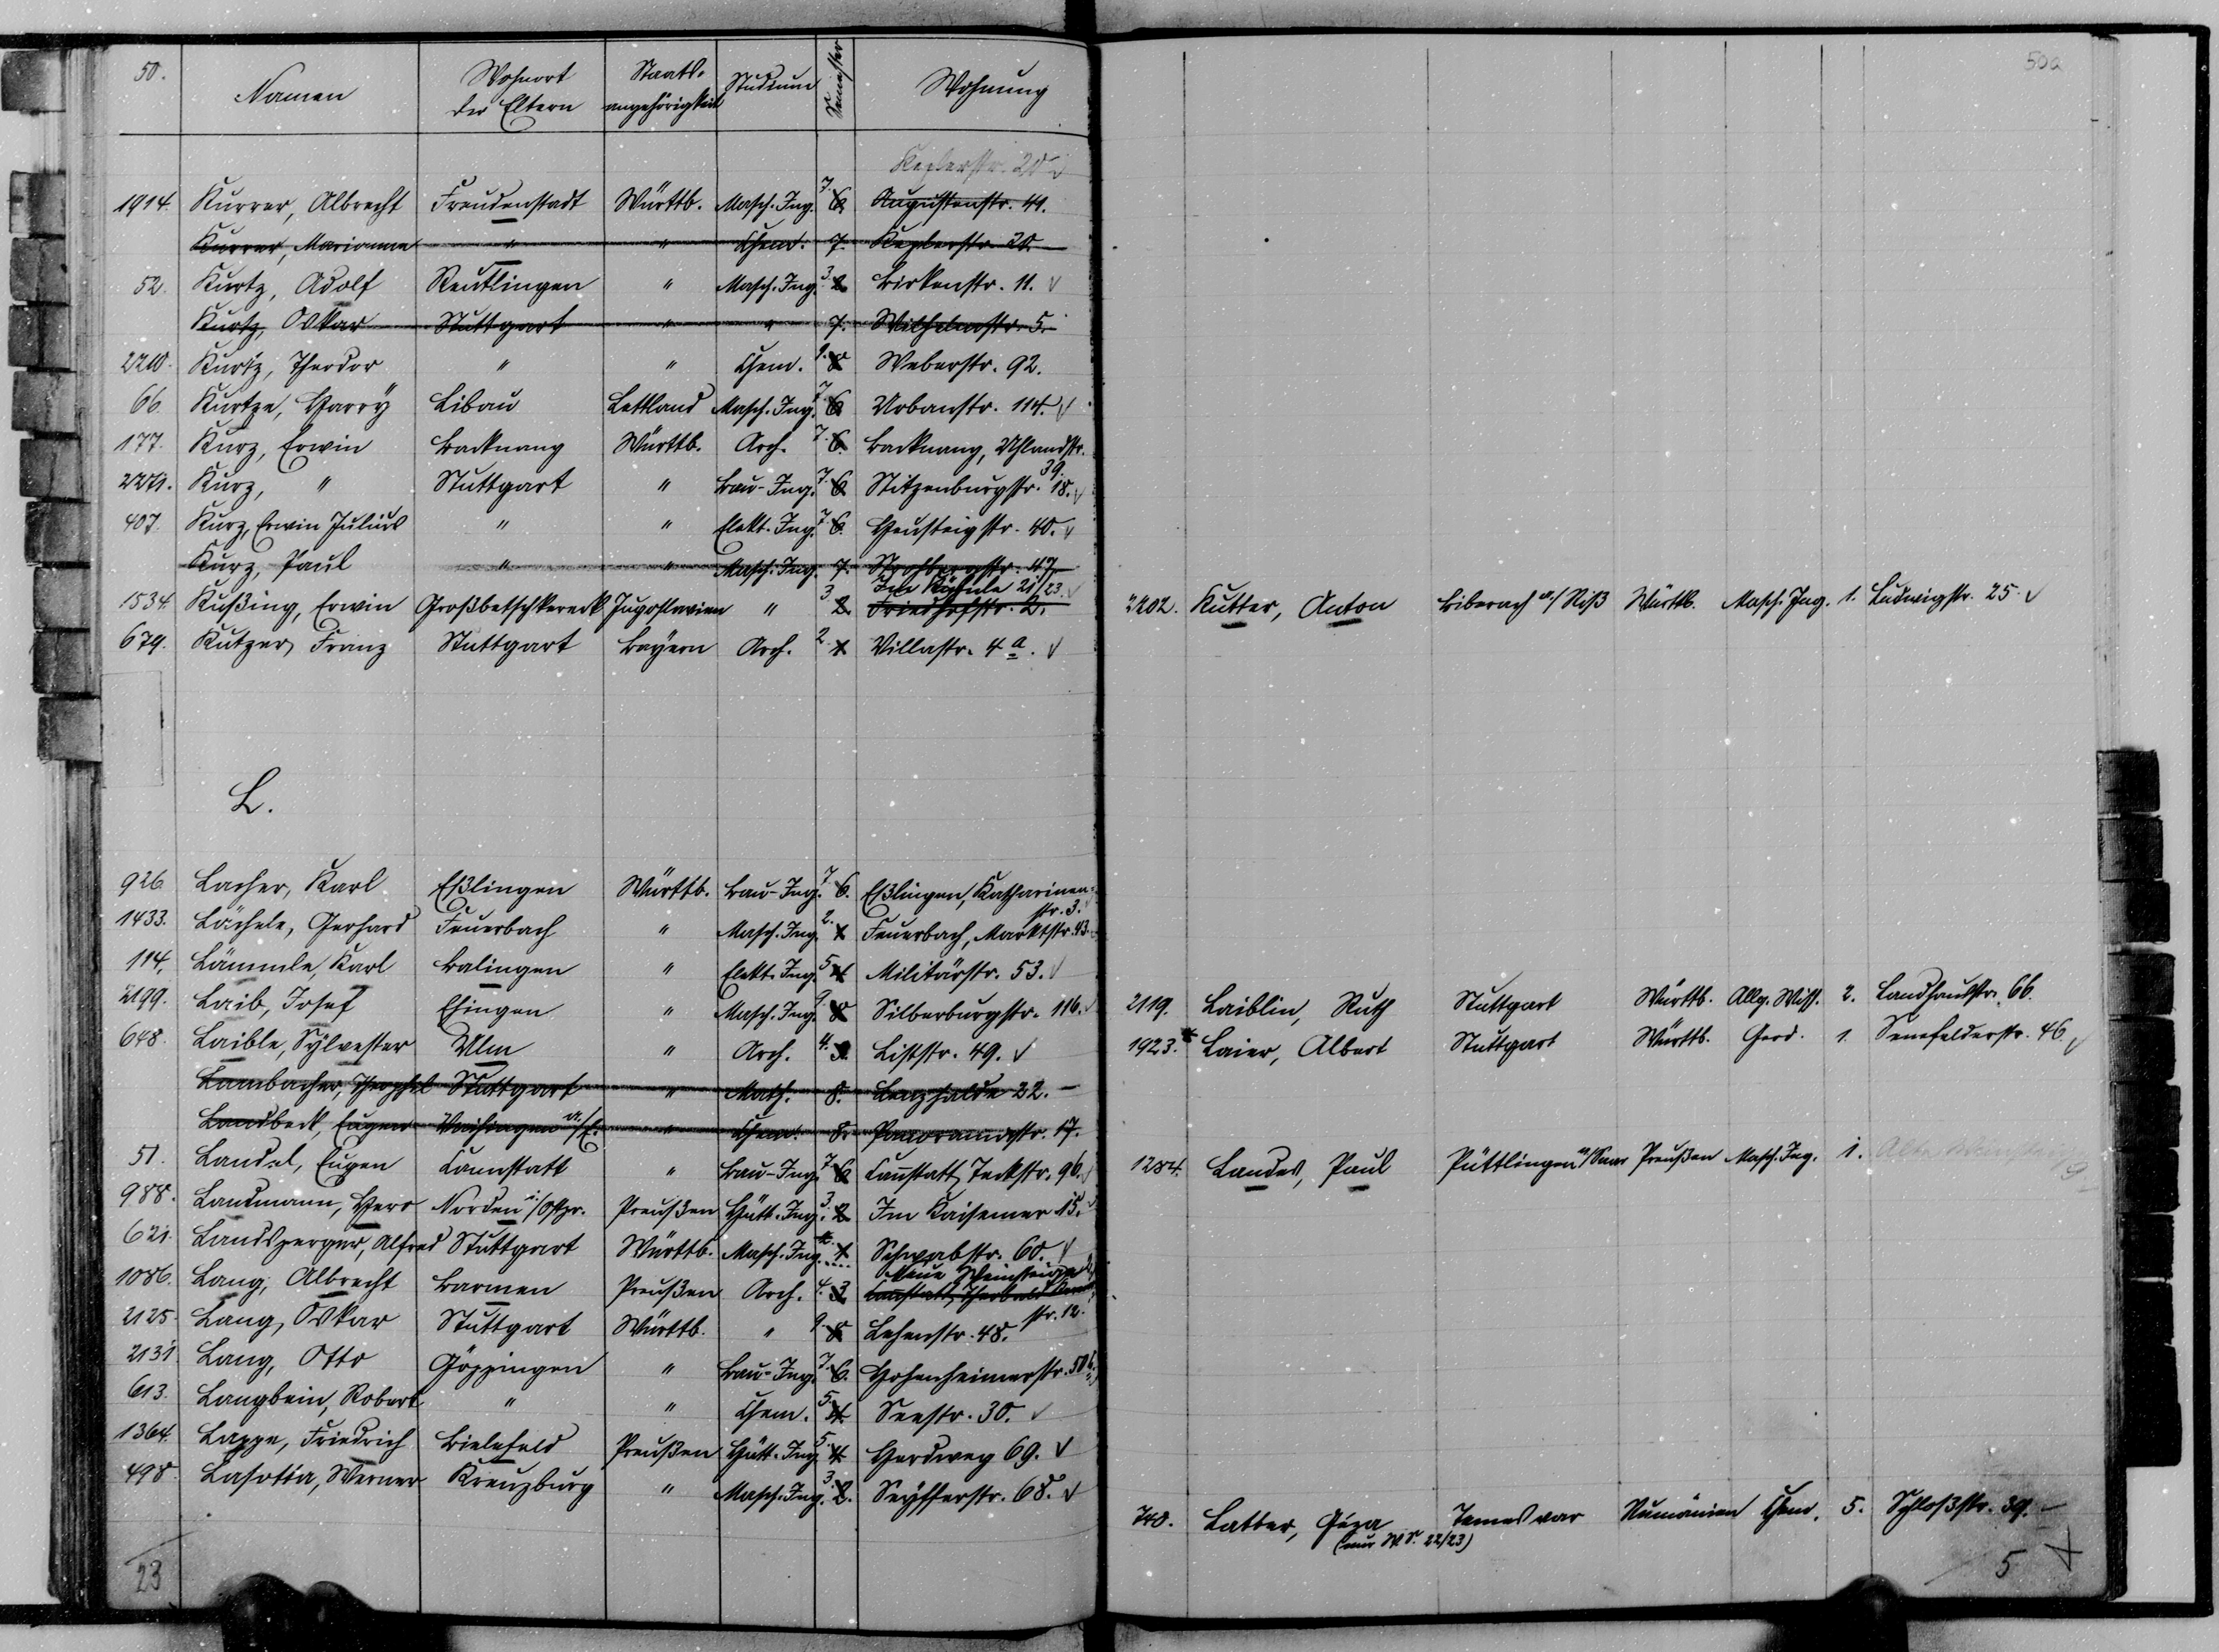 50.
Namen
Wohnort der Eltern
Staatsangehörigkeit
Studium
Semester
Wohnung
50a
Keplerstr. 20 √
1914. Kurrer, Albrecht Freudenstadt Württb. Masch. Ing. 7. 6. Augustenstr. 41.
Kurrer, Marianne " " Chem. 7. Keplerstr. 20.
52. Kurtz, Adolf Reutlingen " Masch. Ing. 3. 2. Birkenstr. 11. √
Kurtz, Oskar Stuttgart " " 7. Wilhelmstr. 5.
2210. Kurtz, Theodor " " Chem. 9. 8. Weberstr. 92.
66. Kurtze, Harry Libau Lettland Masch. Ing. 7. 6. Urbanstr. 114. √
177. Kurz, Erwin Backnang Württb. Arch. 7. 6. Backnang, Uhlandstr. 39.
2271. Kurz, " Stuttgart " Bau-Ing. 7. 6. Stitzenburgstr. 18. √
407. Kurz, Erwin Julius " " Elekt. Ing. 7. 6. Heusteigstr. 40. √
Kurz, Paul " " Masch. Ing. 7. Strohbergstr. 47.
21/23. √
1534. Kußing, Erwin Großbetschkerek Jugoslavien " 3 2. Friedhofstr. 2.
679. Kutzer, Franz Stuttgart Bayern Arch. 2. 1. Villastr. 4 a. √
L.
926 Lacher, Karl Eßlingen Württb. Bau-Ing. 7 6. Eßlingen, Katharinenstr. 3.
1433. Lächele, Gerhard Feuerbach " Masch. Ing. 2. 1. Feuerbach, Marktstr. 43.
114. Lämmle, Karl Balingen " Elekt. Ing. 5 4. Militärstr. 53. √
2199. Laib, Josef Ehingen " Masch. Ing. 9. 8. Silberburgstr. 116. √
648. Laible, Sylvester Ulm " Arch. 4. 3. Liststr. 49. √
Lambacher, Theophil Stuttgart " Math. 8. Lenzhalde 22. –
Landbeck, Eugen Vaihingen a/E. " Chem. 8. Panoramastr. 17.
51. Landel, Eugen Cannstatt " Bau-Ing. 7 6. Cannstatt, Teckstr. 96. √
988. Landmann, Hero Norden i/Ostpr. Preußen Hütt. Ing. 3. 2. Im Kaisemer 15. √
621. Landsperger, Alfred Stuttgart Württb. Masch. Ing. 1. Schwabstr. 60. √
Neue Weinsteige
1086. Lang, Albrecht Barmen Preußen Arch. 4. 3. Cannstatt, str. 12.
2125. Lang, Oskar Stuttgart Württb. " 9. 8. Lehenstr. 48.
2131. Lang, Otto Göppingen " Bau-Ing. 7. 6. Hohenheimerstr. 50 b.
613. Langbein, Robert " " Chem. 5. 4. Seestr. 30. √
1364. Lappe, Friedrich Bielefeld Preußen Hütt. Ing. 5. 4. Herdweg 69. √
498. Lasotta, Werner Kreuzburg " Masch. Ing. 3. 2. Seyfferstr. 68. √
23
2202. Kutter, Anton Biberach a./Riß Württb. Masch. Ing. 1. Ludwigstr. 25. √
2119. Laiblin, Ruth Stuttgart Württb. Allg. Wiss. 2. Landhausstr. 66.
1923.* Laier, Albert Stuttgart Württb. Geod. 1. Senefelderstr. 46. √
1284. Landes, Paul Püttlingen a/Saar Preußen Masch. Ing. 1. Alte
740. Latber, Géza Temesvar Rumänien Chem. 5. Schloßstr. 39. –
(nur W.S. 22/23)
5